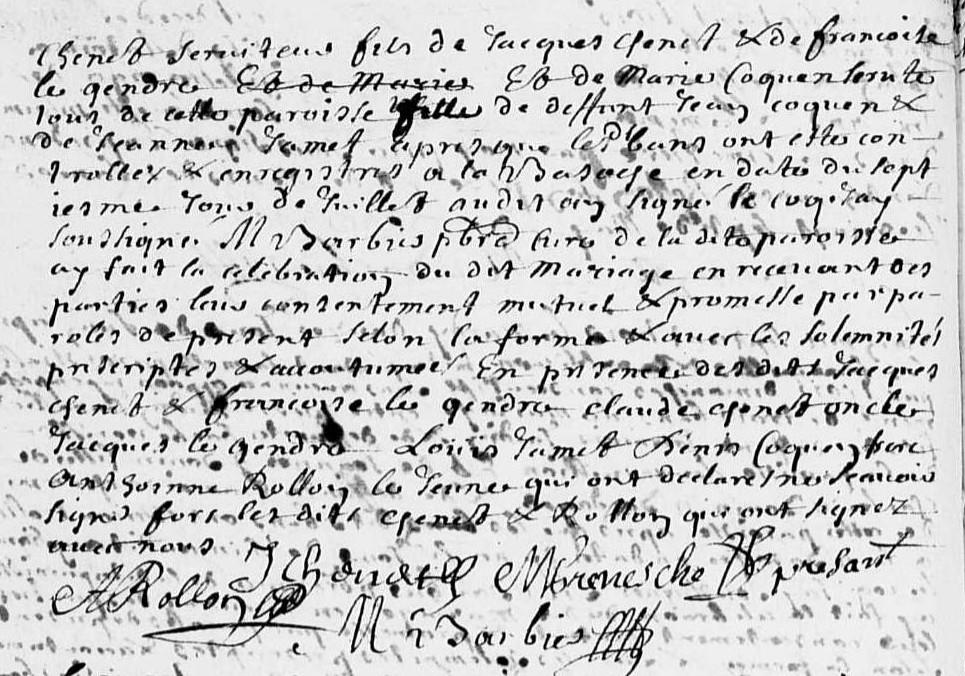 Chenet serviteur fils de Jacques Chenet & de francoise
le gendre Et de Marie Et de Marie Coquen servte
tous de cette paroisse fille de deffunt Jean coquen &
de Jeanne Jamet apres que les bans ont esté con-
trollez & enregistrés a la Bazoche en date du sept
iesme Jour de Juillet audit an signé le coq Jay
soussigné M Barbier pbre Curé de la dite paroisse
ay fait la celebration du dit Mariage en recevant des
parties leur consentement mutuel & promesse par pa-
roles de present selon la forme & avec les solemnités
prescriptes & accoutumées En presence des dits Jacques
chenet & francoise le gendre claude chenet oncle
Jacques le gendre Louis Jamet Denis Coquen frere
Anthoinne Rollon le Jeune qui ont declaré ne scavoir
signer fors les dits chenet & Rollon qui ont signez
avec nous
J Chenet
A Rollon
M Barbier